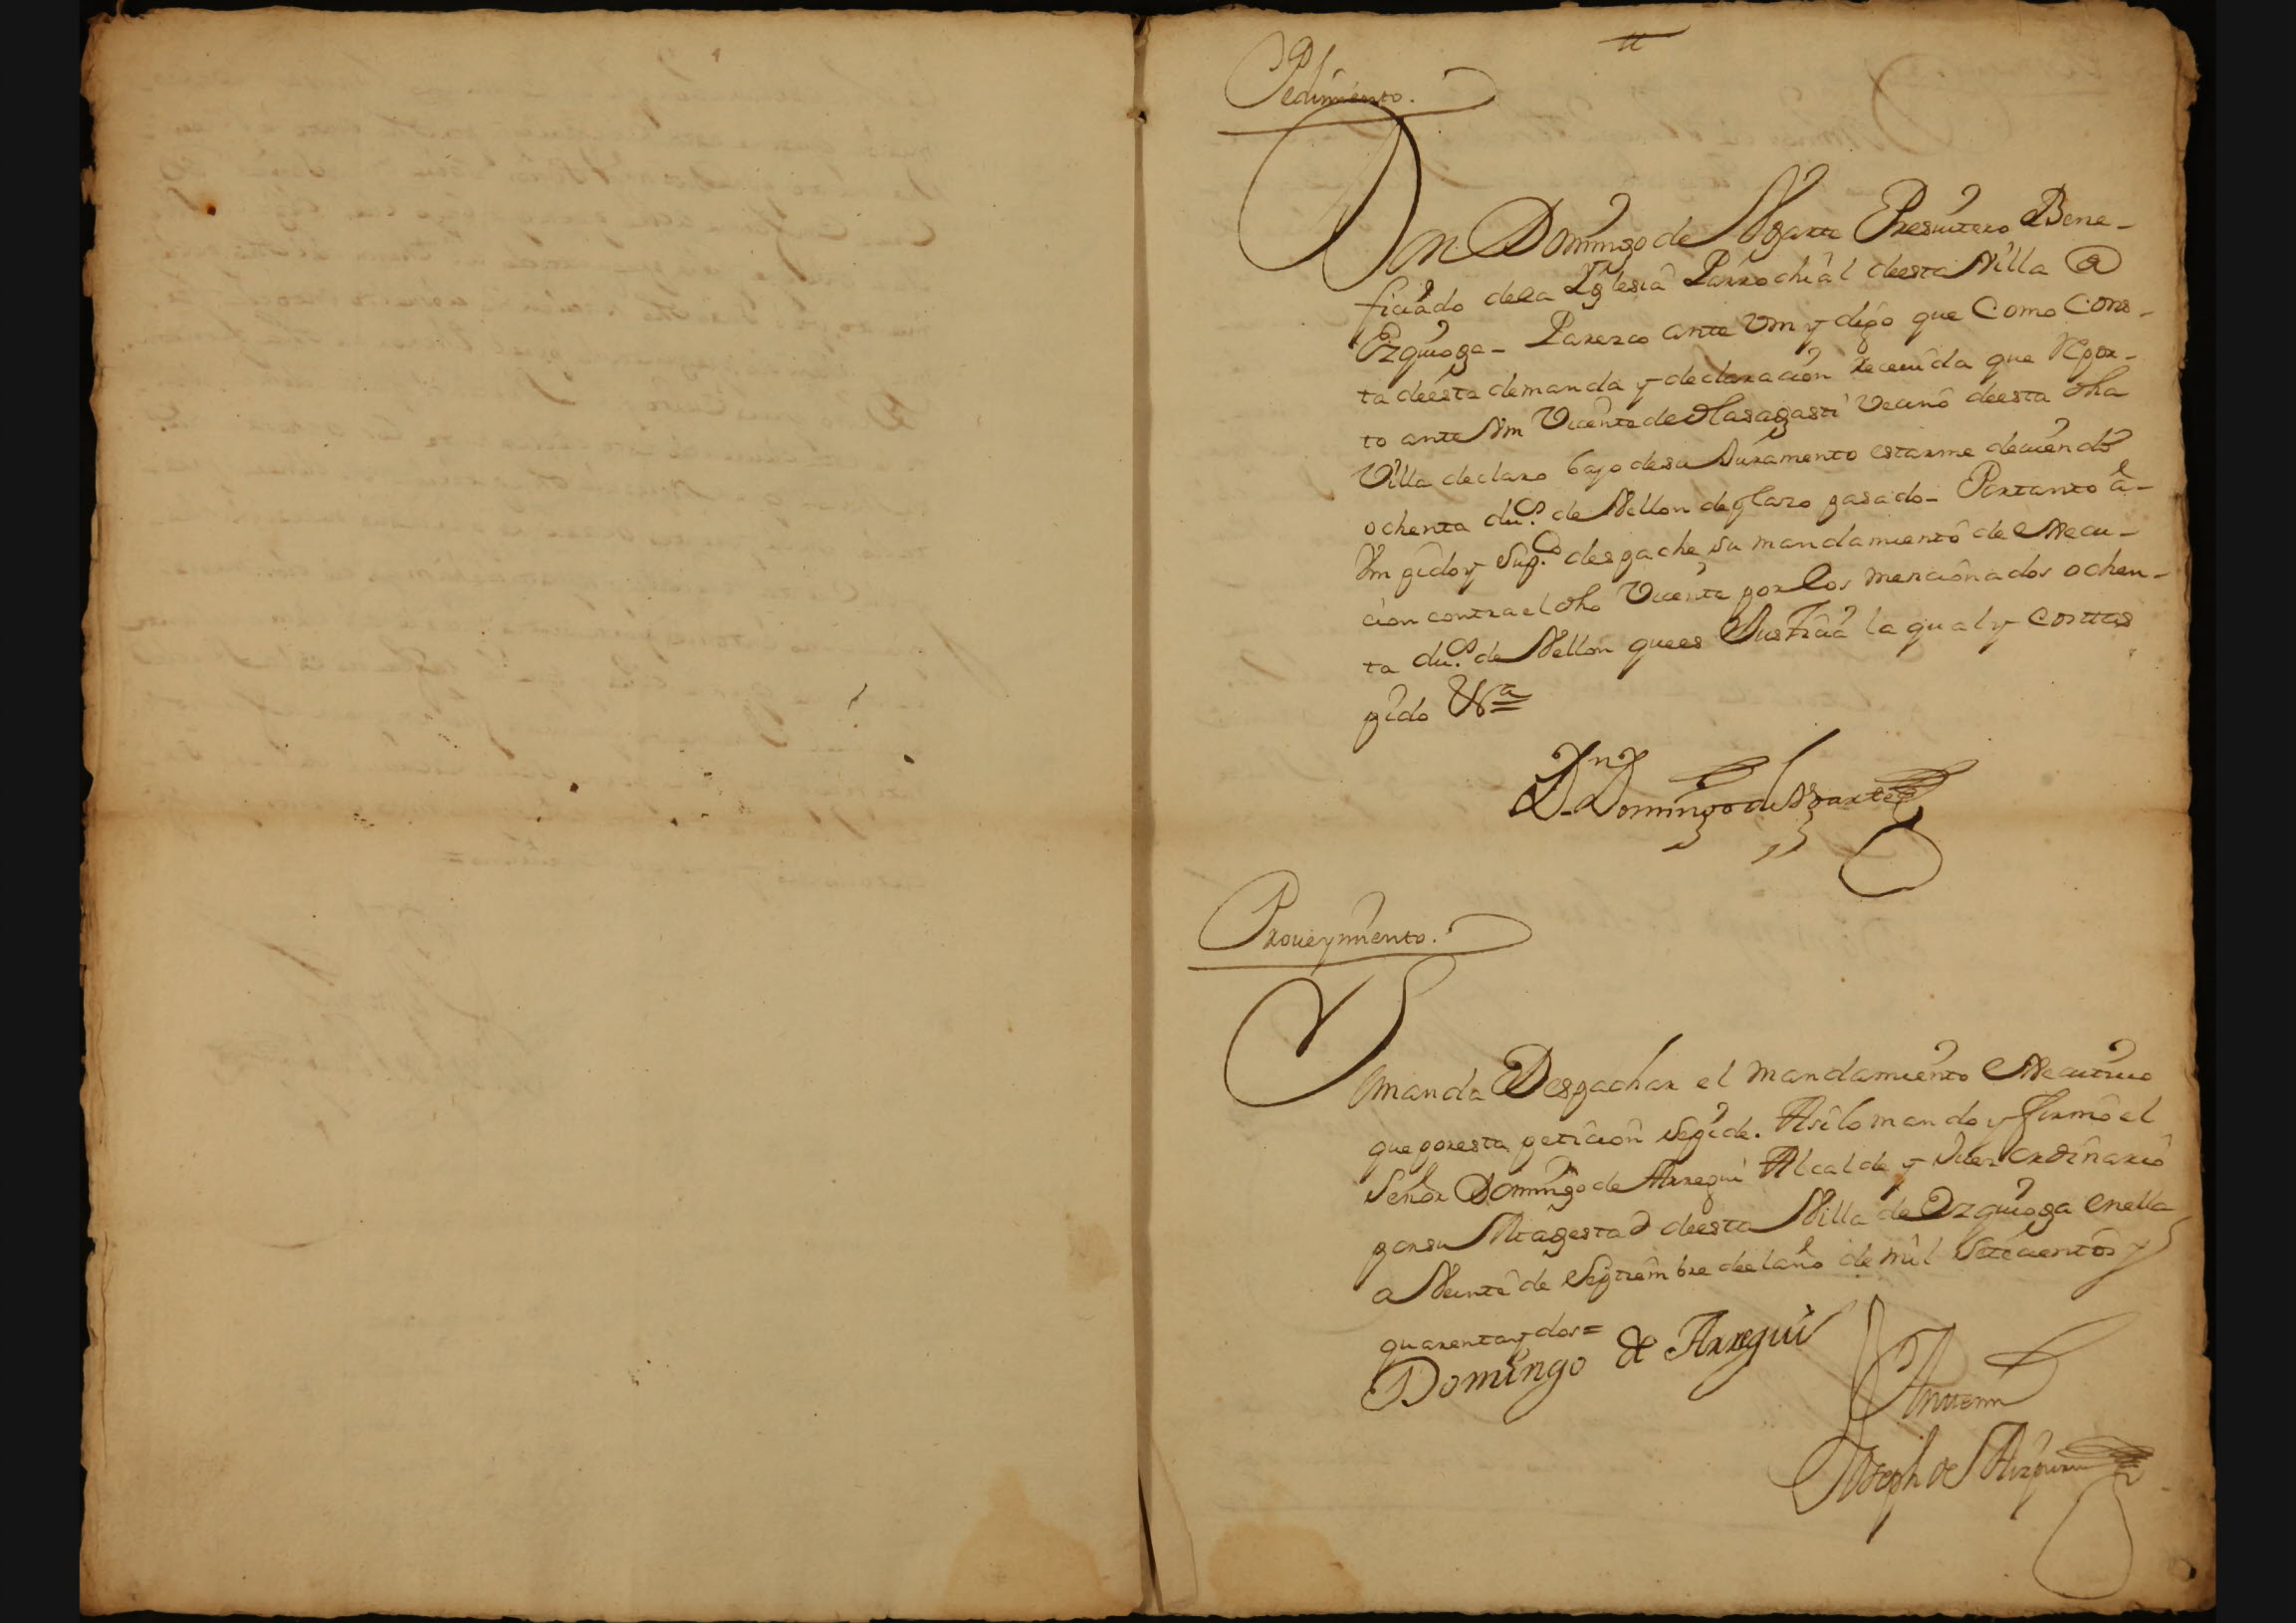 Pedimiento.
Dn. Domingo de Ugarte Presvitero Bene-
ficiado dela Yglesia Parrochial deesta Villa de
Ezquioga- Parezco ante Vm y digo que Como Cons-
ta deesta demanda y declaracion receuida que Repor-
to ante Vm Vicente de Olasagasti Vecino deesta dha
Villa declaro bajo desu Juramento estarme deuiendo
ochenta du.s de Vellon de plazo pasado- Portanto a-
Vm pido y Sup.co despache su mandamiento de execu-
cion contra el dho Vicente por los mencionados ochen-
ta du.s de Vellon que es Justicia la qual y costtas
pido &a =
Dn Domingo de Ugarte
Proueymiento.
Manda Despachar el mandamiento executiuo
que por esta peticion Sepide. Asilo mando y firmo el
Señor Domingo de Arregui Alcalde y Juez ordinario
por su Magestad deesta Villa de Ezquioga enella
a Veinte de Septiembre deel año de mil Setecientos y
quarenta y dos =
Domingo de Arregui
Antemi
Joseph de Aizpuru